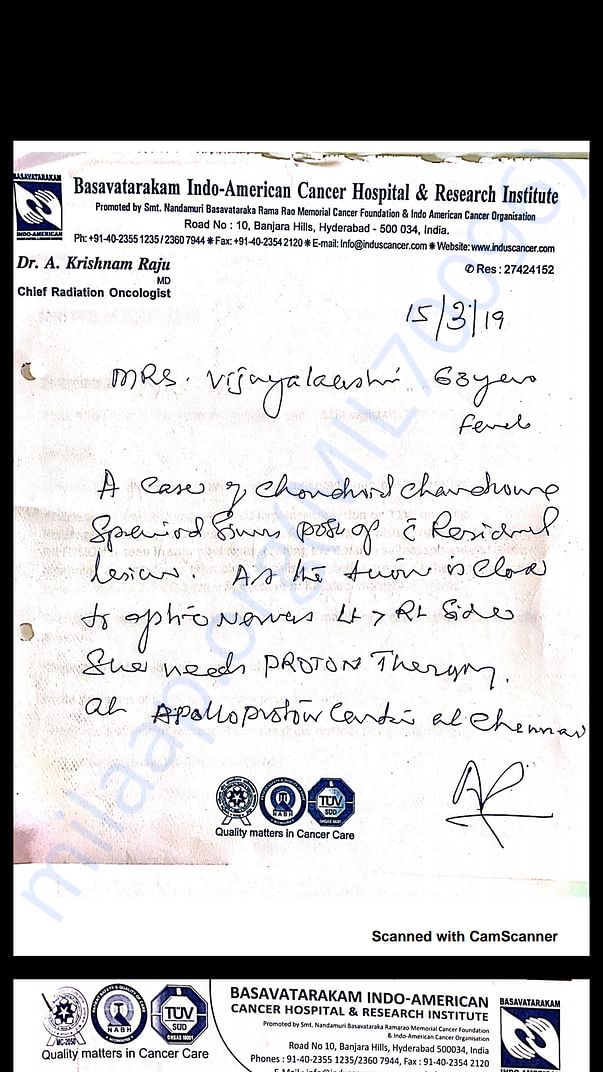 BASAVATARAKAM
INDO-AMERICAN
Basavatarakam Indo-American Cancer Hospital & Research Institute
Promoted by Smt. Nandamuri Basavataraka Rama Rao Memorial Cancer Foundation & Indo American Cancer Organisation
Road No : 10, Banjara Hills, Hyderabad - 500 034, India.
Ph: +91-40-2355 1235 / 2360 7944 ✱ Fax: +91-40-2354 2120 ✱ E-mail: Info@induscancer.com ✱ Website: www.induscancer.com
Dr. A. Krishnam Raju
MD
Chief Radiation Oncologist
✆ Res : 27424152
15/3/19
MRS. Vijayalaxshi 63 years
Female
A case of chondroid
post op c̄ Residual
lesion. As the tumor is close
to optic nerves Lt > Rt side
She needs PROTON Therapy.
at Apollo proton Center at Chennai
NABH
TÜV
SÜD
Quality matters in Cancer Care
milaap.org
Scanned with CamScanner
NABH
TÜV
SÜD
OHSAS 18001
MC-2050
Quality matters in Cancer Care
BASAVATARAKAM INDO-AMERICAN
CANCER HOSPITAL & RESEARCH INSTITUTE
Promoted by Smt. Nandamuri Basavataraka Ramarao Memorial Cancer Foundation
& Indo American Cancer Organisation
Road No 10, Banjara Hills, Hyderabad 500034, India
Phones : 91-40-2355 1235/2360 7944, Fax : 91-40-2354 2120
BASAVATARAKAM